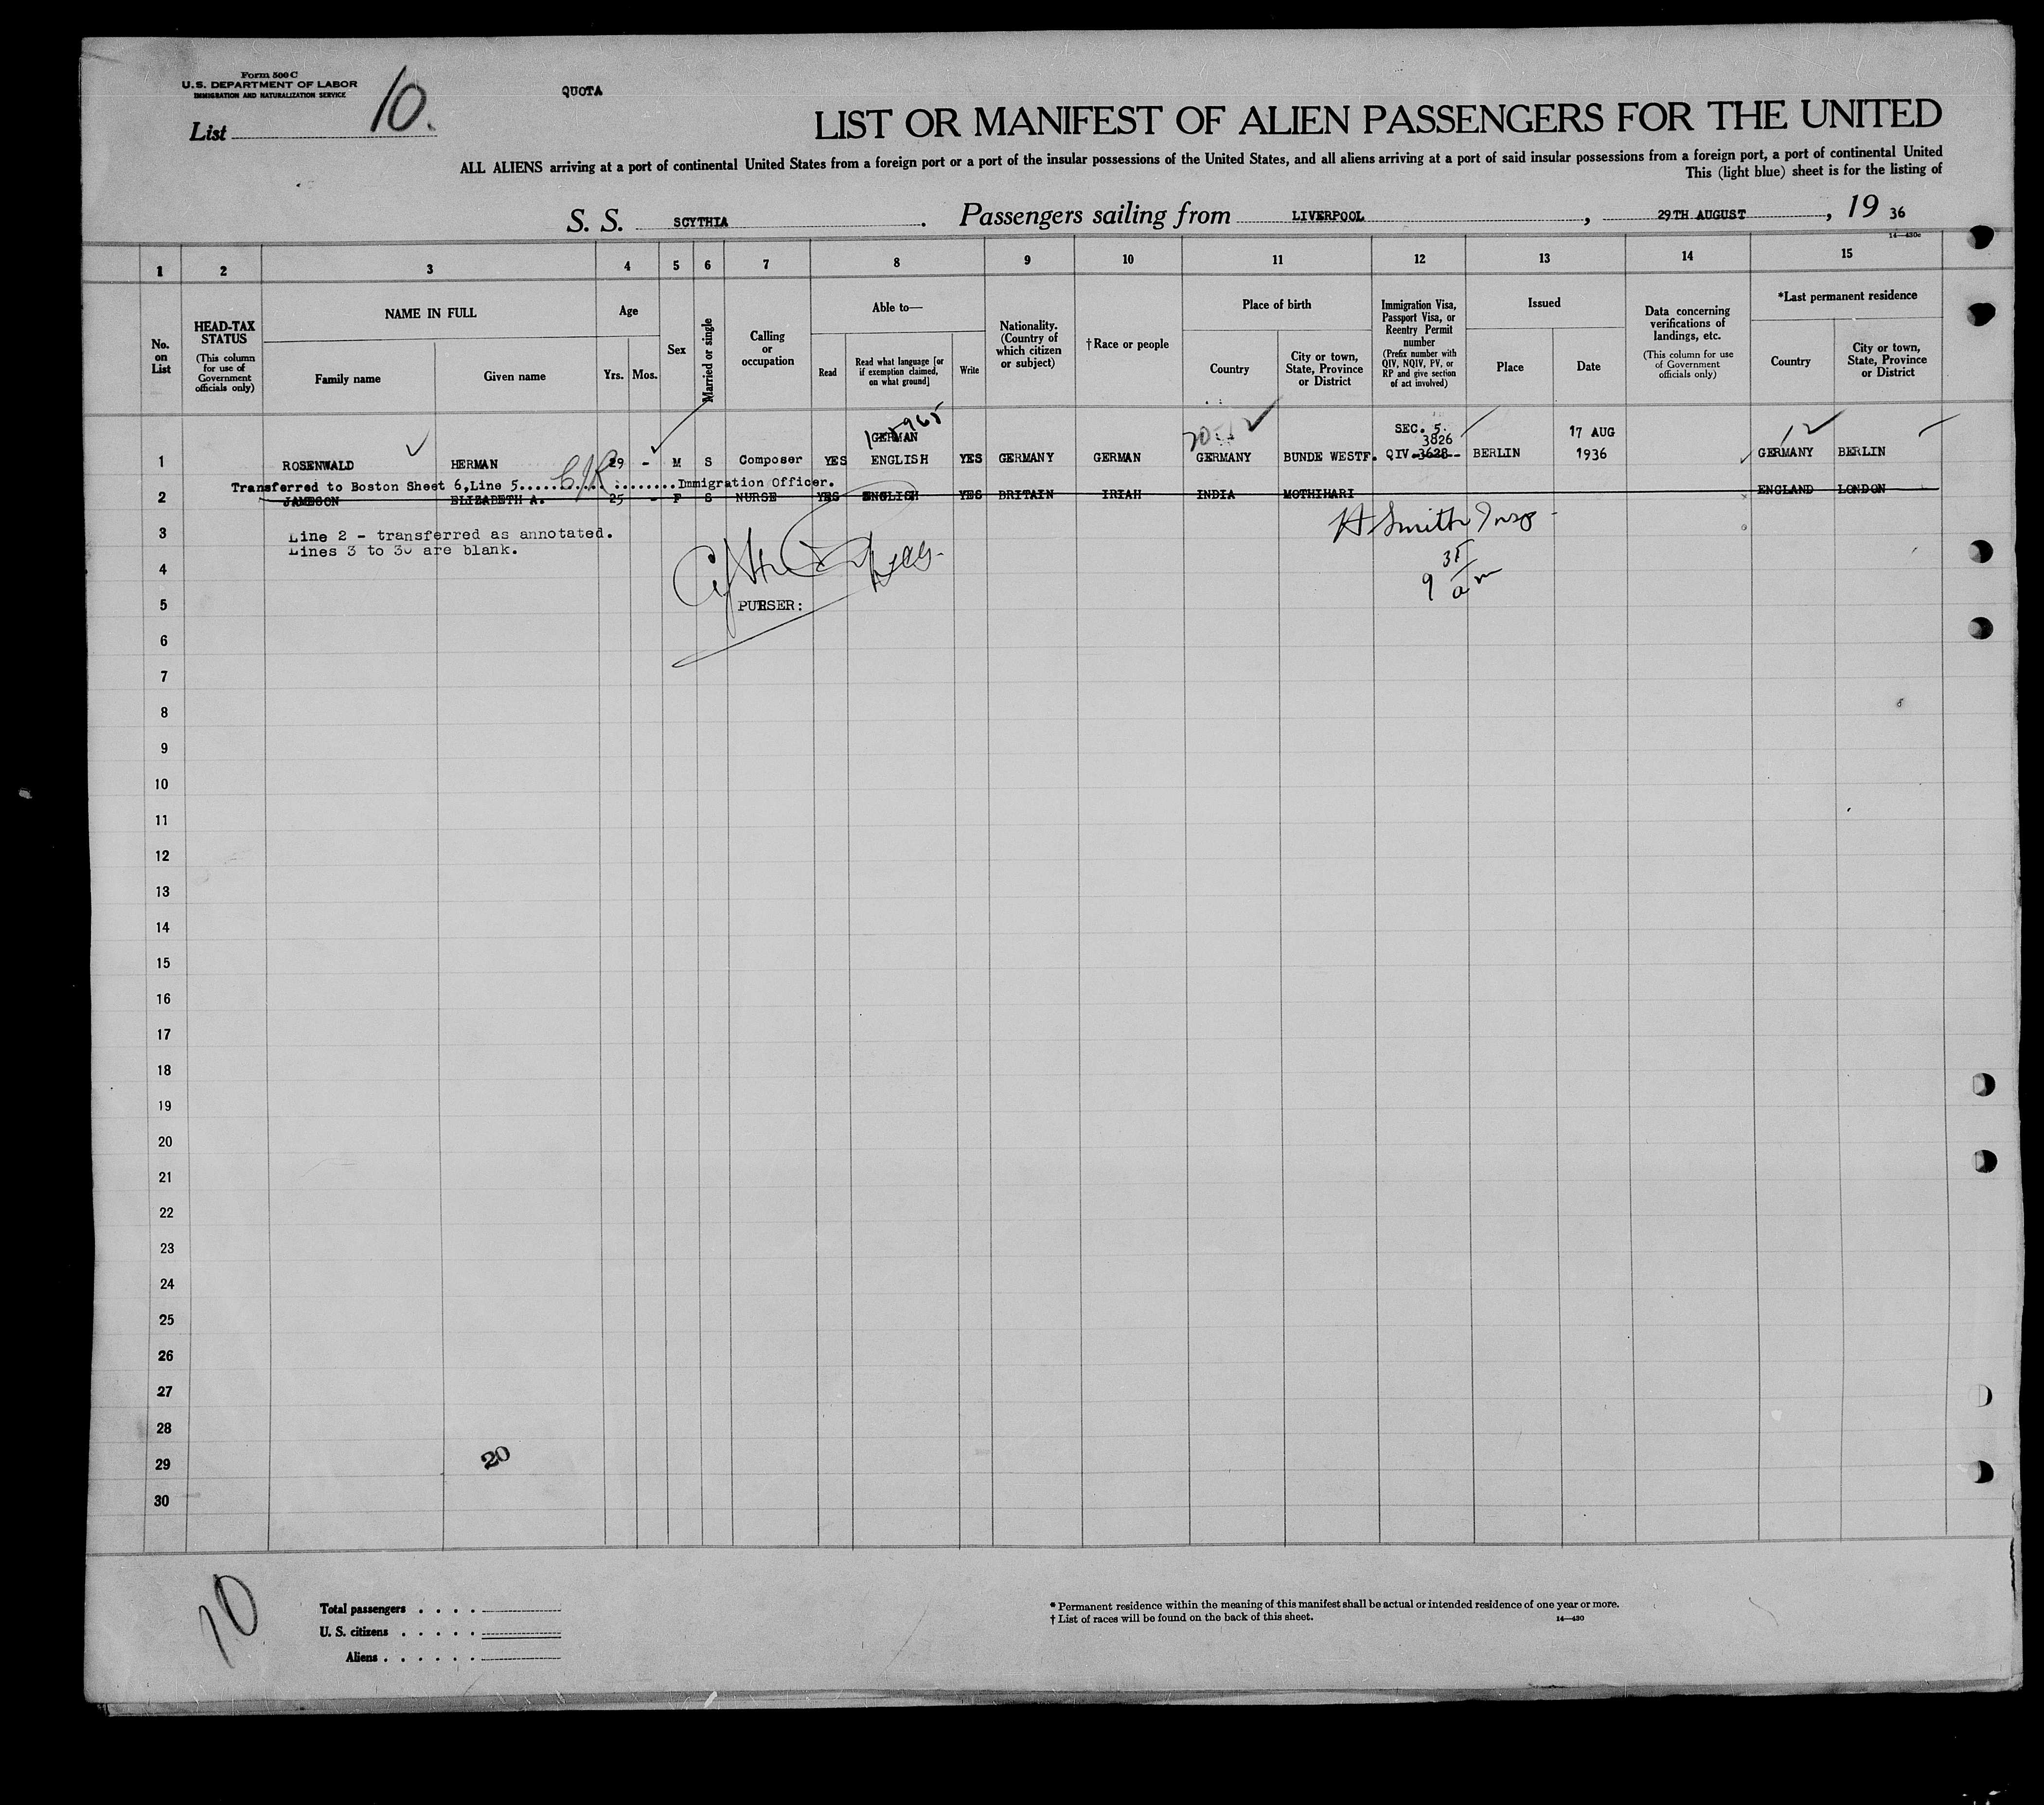 Form 500 C
U. S. DEPARTMENT OF LABOR
IMMIGRATION AND NATURALIZATION SERVICE
List 10.
QUOTA
LIST OR MANIFEST OF ALIEN PASSENGERS FOR THE UNITED
ALL ALIENS arriving at a port of continental United States from a foreign port or a port of the insular possessions of the United States, and all aliens arriving at a port of said insular possessions from a foreign port, a port of continental United
This (light blue) sheet is for the listing of
S. S. SCYTHIA. Passengers sailing from LIVERPOOL, 29TH AUGUST, 19 36
14—430c
1 2 3 4 5 6 7 8 9 10 11 12 13 14 15
No. on List
HEAD-TAX STATUS
(This column for use of Government officials only)
NAME IN FULL
Family name
Given name
Age
Yrs.
Mos.
Sex
Married or single
Calling or occupation
Able to—
Read
Read what language [or if exemption claimed, on what ground]
Write
Nationality. (Country of which citizen or subject)
† Race or people
Place of birth
Country
City or town, State, Province or District
Immigration Visa, Passport Visa, or Reentry Permit number
(Prefix number with QIV, NQIV, PV, or RP and give section of act involved)
Issued
Place
Date
Data concerning verifications of landings, etc.
(This column for use of Government officials only)
*Last permanent residence
Country
City or town, State, Province or District
GERMAN SEC. 5. 3826 17 AUG
1 ROSENWALD HERMAN 29 - M S Composer YES ENGLISH YES GERMANY GERMAN GERMANY BUNDE WESTF. QIV-3628- BERLIN 1936 GERMANY BERLIN
Transferred to Boston Sheet 6,Line 5..........Immigration Officer.
2 JAMESON ELIZABETH A. 25 - F S NURSE YES ENGLISH YES BRITAIN IRIAH INDIA MOTHIHARI ENGLAND LONDON
3 Line 2 - transferred as annotated.
Lines 3 to 30 are blank.
H Smith Insp
35
9 am
4
5 PURSER:
6
7
8
9
10
11
12
13
14
15
16
17
18
19
20
21
22
23
24
25
26
27
28
29 20
30
10
Total passengers . . . .
U. S. citizens . . . . .
Aliens . . . . . .
* Permanent residence within the meaning of this manifest shall be actual or intended residence of one year or more.
† List of races will be found on the back of this sheet. 14—430